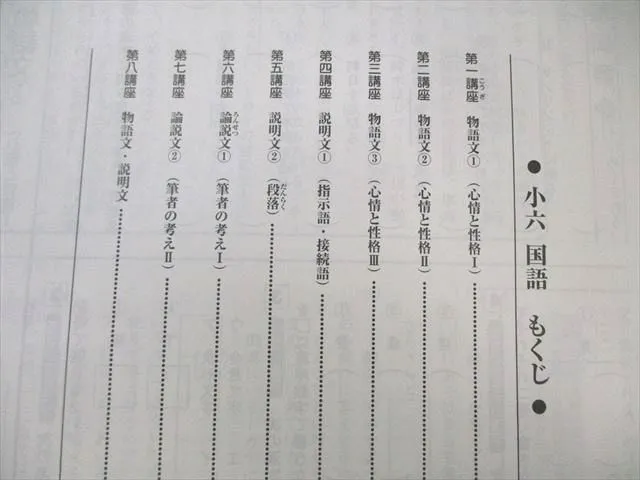 ●小六 国語 もくじ●
第一講座 物語文①(心情と性格Ⅰ)
第二講座 物語文②(心情と性格Ⅱ)
第三講座 物語文③(心情と性格Ⅲ)
第四講座 説明文①(指示語・接続語)
第五講座 説明文②(段落)
第六講座 論説文①(筆者の考えⅠ)
第七講座 論説文②(筆者の考えⅡ)
第八講座 物語文・説明文